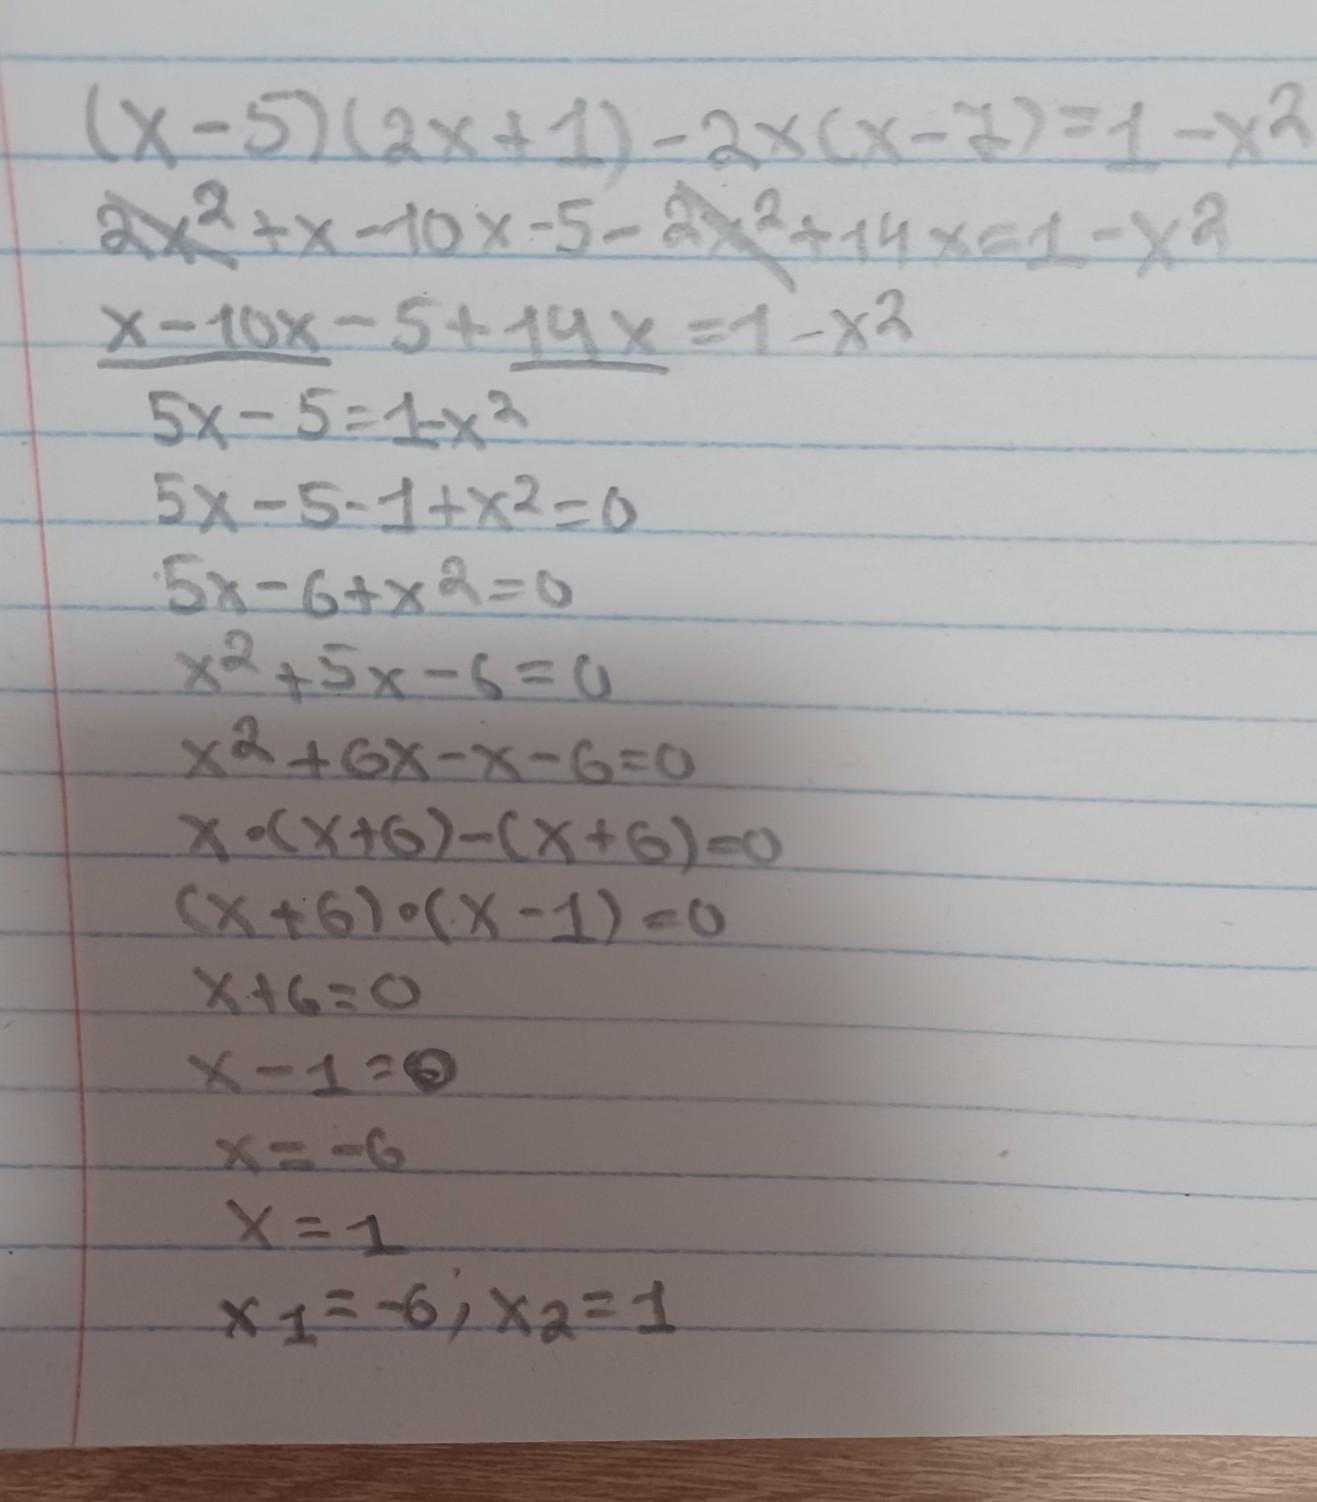 (x-5)(2x+1)-2x(x-7)=1-x²
2x²+x-10x-5-2x²+14x=1-x²
x-10x-5+14x=1-x²
5x-5=1-x²
5x-5-1+x²=0
5x-6+x²=0
x²+5x-6=0
x²+6x-x-6=0
x·(x+6)-(x+6)=0
(x+6)·(x-1)=0
x+6=0
x-1=0
x=-6
x=1
x1=-6; x2=1